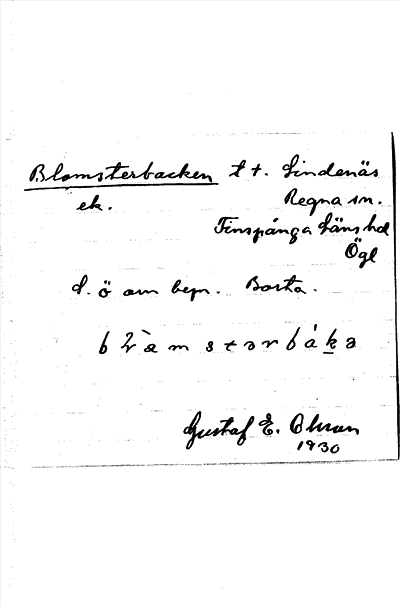 Blomsterbacken t t. Lindenäs
ek. Regna sn.
Finspånga läns hd
Ögl
S. ö om bepn. Borta.
b l ὰ m s t ə r b á k ə
Gustaf E. Ohman
1930